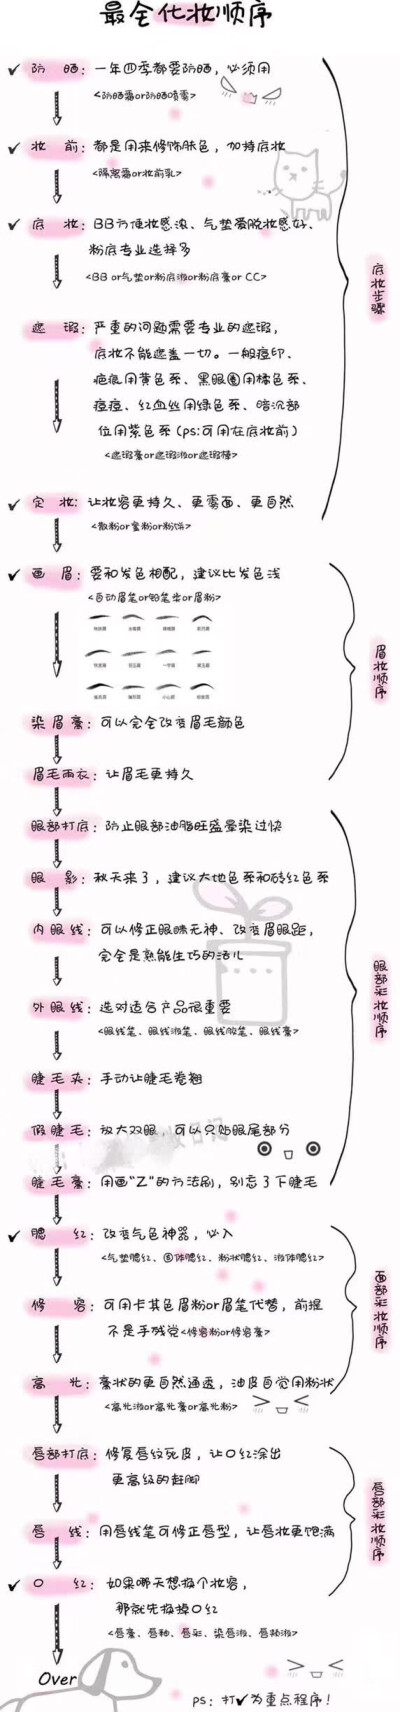 最全化妆顺序
✓ 防晒：一年四季都要防晒，必须用
<防晒霜or防晒喷雾>
✓ 妆前：都是用来修饰肤色，加持底妆
<隔离霜or妆前乳>
✓ 底妆：BB方便妆感浓、气垫爱脱妆感好、
粉底专业选择多
<BB or气垫or粉底液or粉底膏or CC>
遮瑕：严重的问题需要专业的遮瑕，
底妆不能遮盖一切。一般痘印、
疤痕用黄色系、黑眼圈用橘色系、
痘痘、红血丝用绿色系、暗沉部
位用紫色系(ps:可用在底妆前)
<遮瑕膏or遮瑕液or遮瑕棒>
✓ 定妆：让妆容更持久、更雾面、更自然
<散粉or蜜粉or粉饼>
底妆步骤
✓ 画眉：要和发色相配，建议比发色浅
<自动眉笔or铅笔步or眉粉>
染眉膏：可以完全改变眉毛颜色
眉毛雨衣：让眉毛更持久
眉妆顺序
眼部打底：防止眼部油脂旺盛晕染过快
眼影：秋天来了，建议大地色系和砖红色系
内眼线：可以修正眼睛无神、改变眉眼距，
完全是熟能生巧的活儿
外眼线：选对适合产品很重要
<眼线笔、眼线液笔、眼线胶笔、眼线膏>
睫毛夹：手动让睫毛卷翘
假睫毛：放大双眼，可以只贴眼尾部分
睫毛膏：用画“Z”的方法刷，别忘了下睫毛
眼部彩妆顺序
✓ 腮红：改变气色神器，必入
<气垫腮红、固体腮红、粉状腮红、液体腮红>
修容：可用卡其色眉粉or眉笔代替，前提
不是手残党<修容粉or修容膏>
高光：膏状的更自然通透，油皮自觉用粉状
<高光液or高光膏or高光粉>
面部彩妆顺序
唇部打底：修复唇纹死皮，让口红涂出
更高级的赶脚
唇线：用唇线笔可修正唇型，让唇妆更饱满
✓ 口红：如果哪天想换个妆容，
那就先换掉口红
<唇膏、唇釉、唇彩、染唇液、唇颊液>
唇部彩妆顺序
Over
ps：打✓为重点程序！